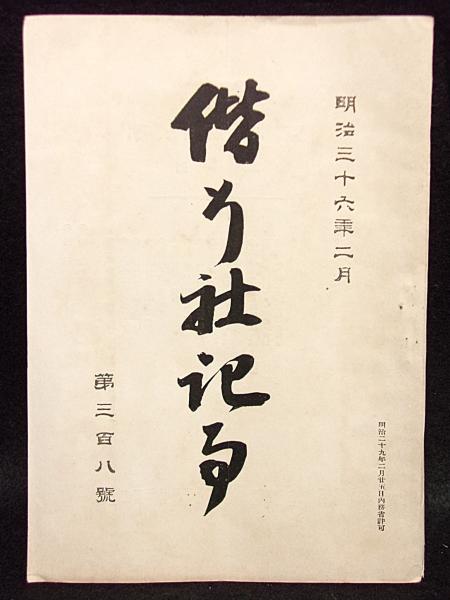 明治三十六年二月
偕行社記事
第三百八號
明治二十九年二月廿五日内務省許可